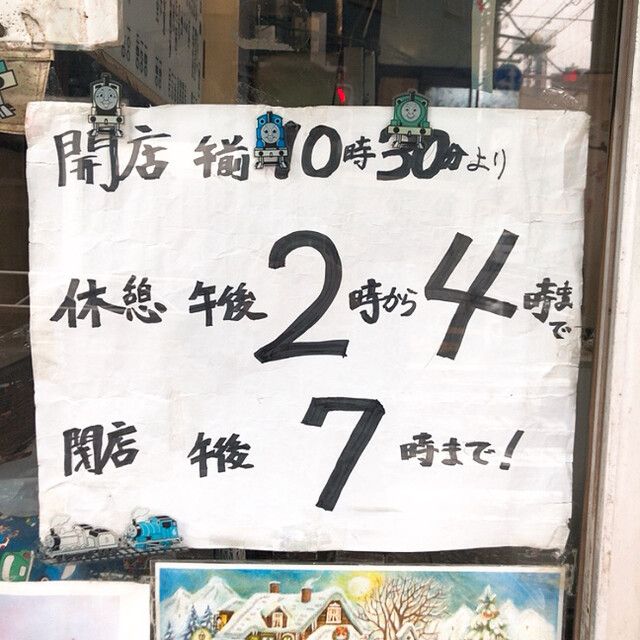 開店 午前 10時30分より
休憩 午後 2時から4時まで
閉店 午後 7時まで!